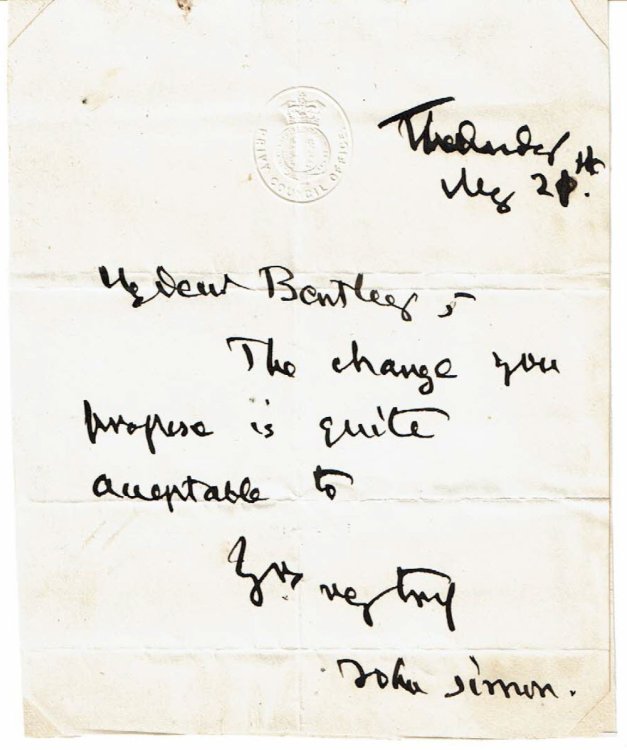 PRIVY COUNCIL OFFICE
Thursday
My dear Bentley,
The change you
propose is quite
acceptable to
Yrs very truly
John Simon.